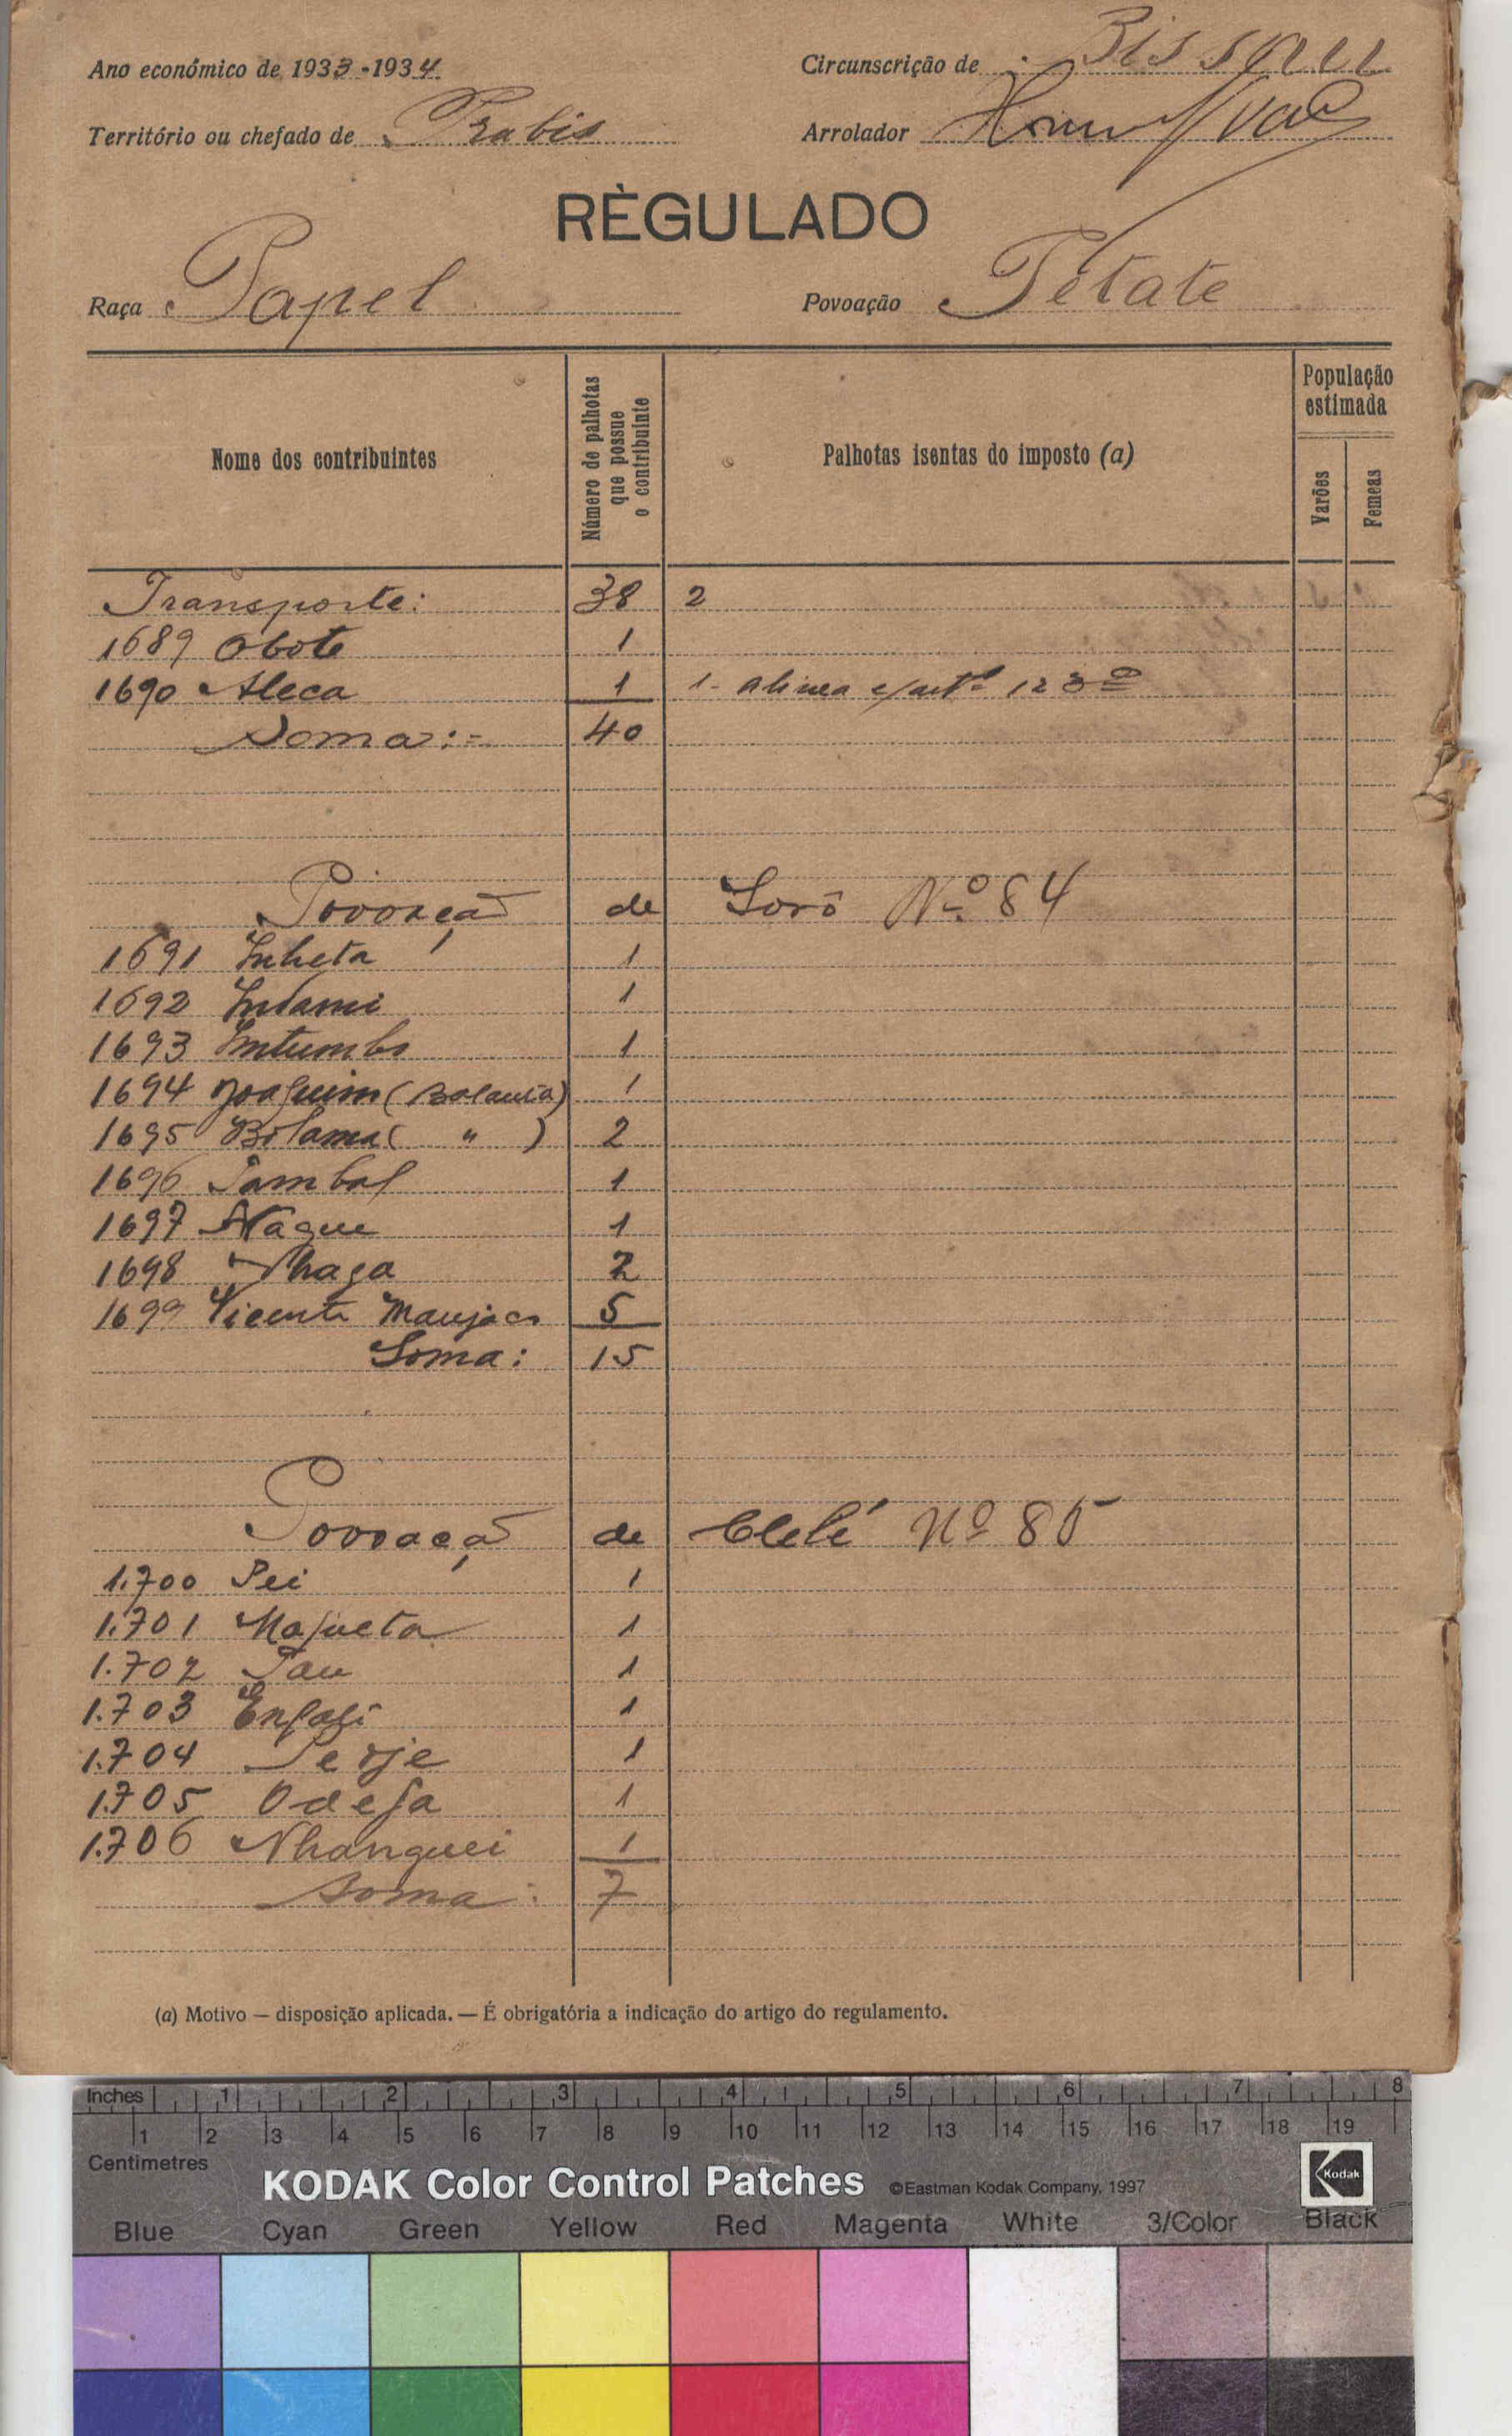 Ano económico de 1933-1934 Circunscrição de Bissau
Território ou chefado de Prabis Arrolador
RÈGULADO
Raça Papel Povoação Pètate
Nome dos contribuintes
Número de palhotas que possue o contribuinte
Palhotas isentas do imposto (a)
População estimada
Varões
Femeas
Transporte: 38 2
1689 Obote 1
1690 Aleca 1 1- alinea c/artº 123º
Soma:= 40
Povoação de Sorô Nº 84
1691 Inheta 1
1692 1
1693 Intumbo 1
1694 Joaquim (Balanta) 1
1695 Bolama ( " ) 2
1696 1
1697 Nague 1
1698 Nhaga 2
1699 Vicente Manjaco 5
Soma: 15
Povoação de Clelé Nº 85
1.700 1
1.701 Maqueta 1
1.702 1
1.703 1
1.704 1
1.705 1
1.706 Nhanguei 1
Soma: 7
(a) Motivo — disposição aplicada. — É obrigatória a indicação do artigo do regulamento.
Inches 1 2 3 4 5 6 7 8
1 2 3 4 5 6 7 8 9 10 11 12 13 14 15 16 17 18 19
Centimetres
KODAK Color Control Patches ©Eastman Kodak Company, 1997 Kodak
Blue Cyan Green Yellow Red Magenta White 3/Color Black